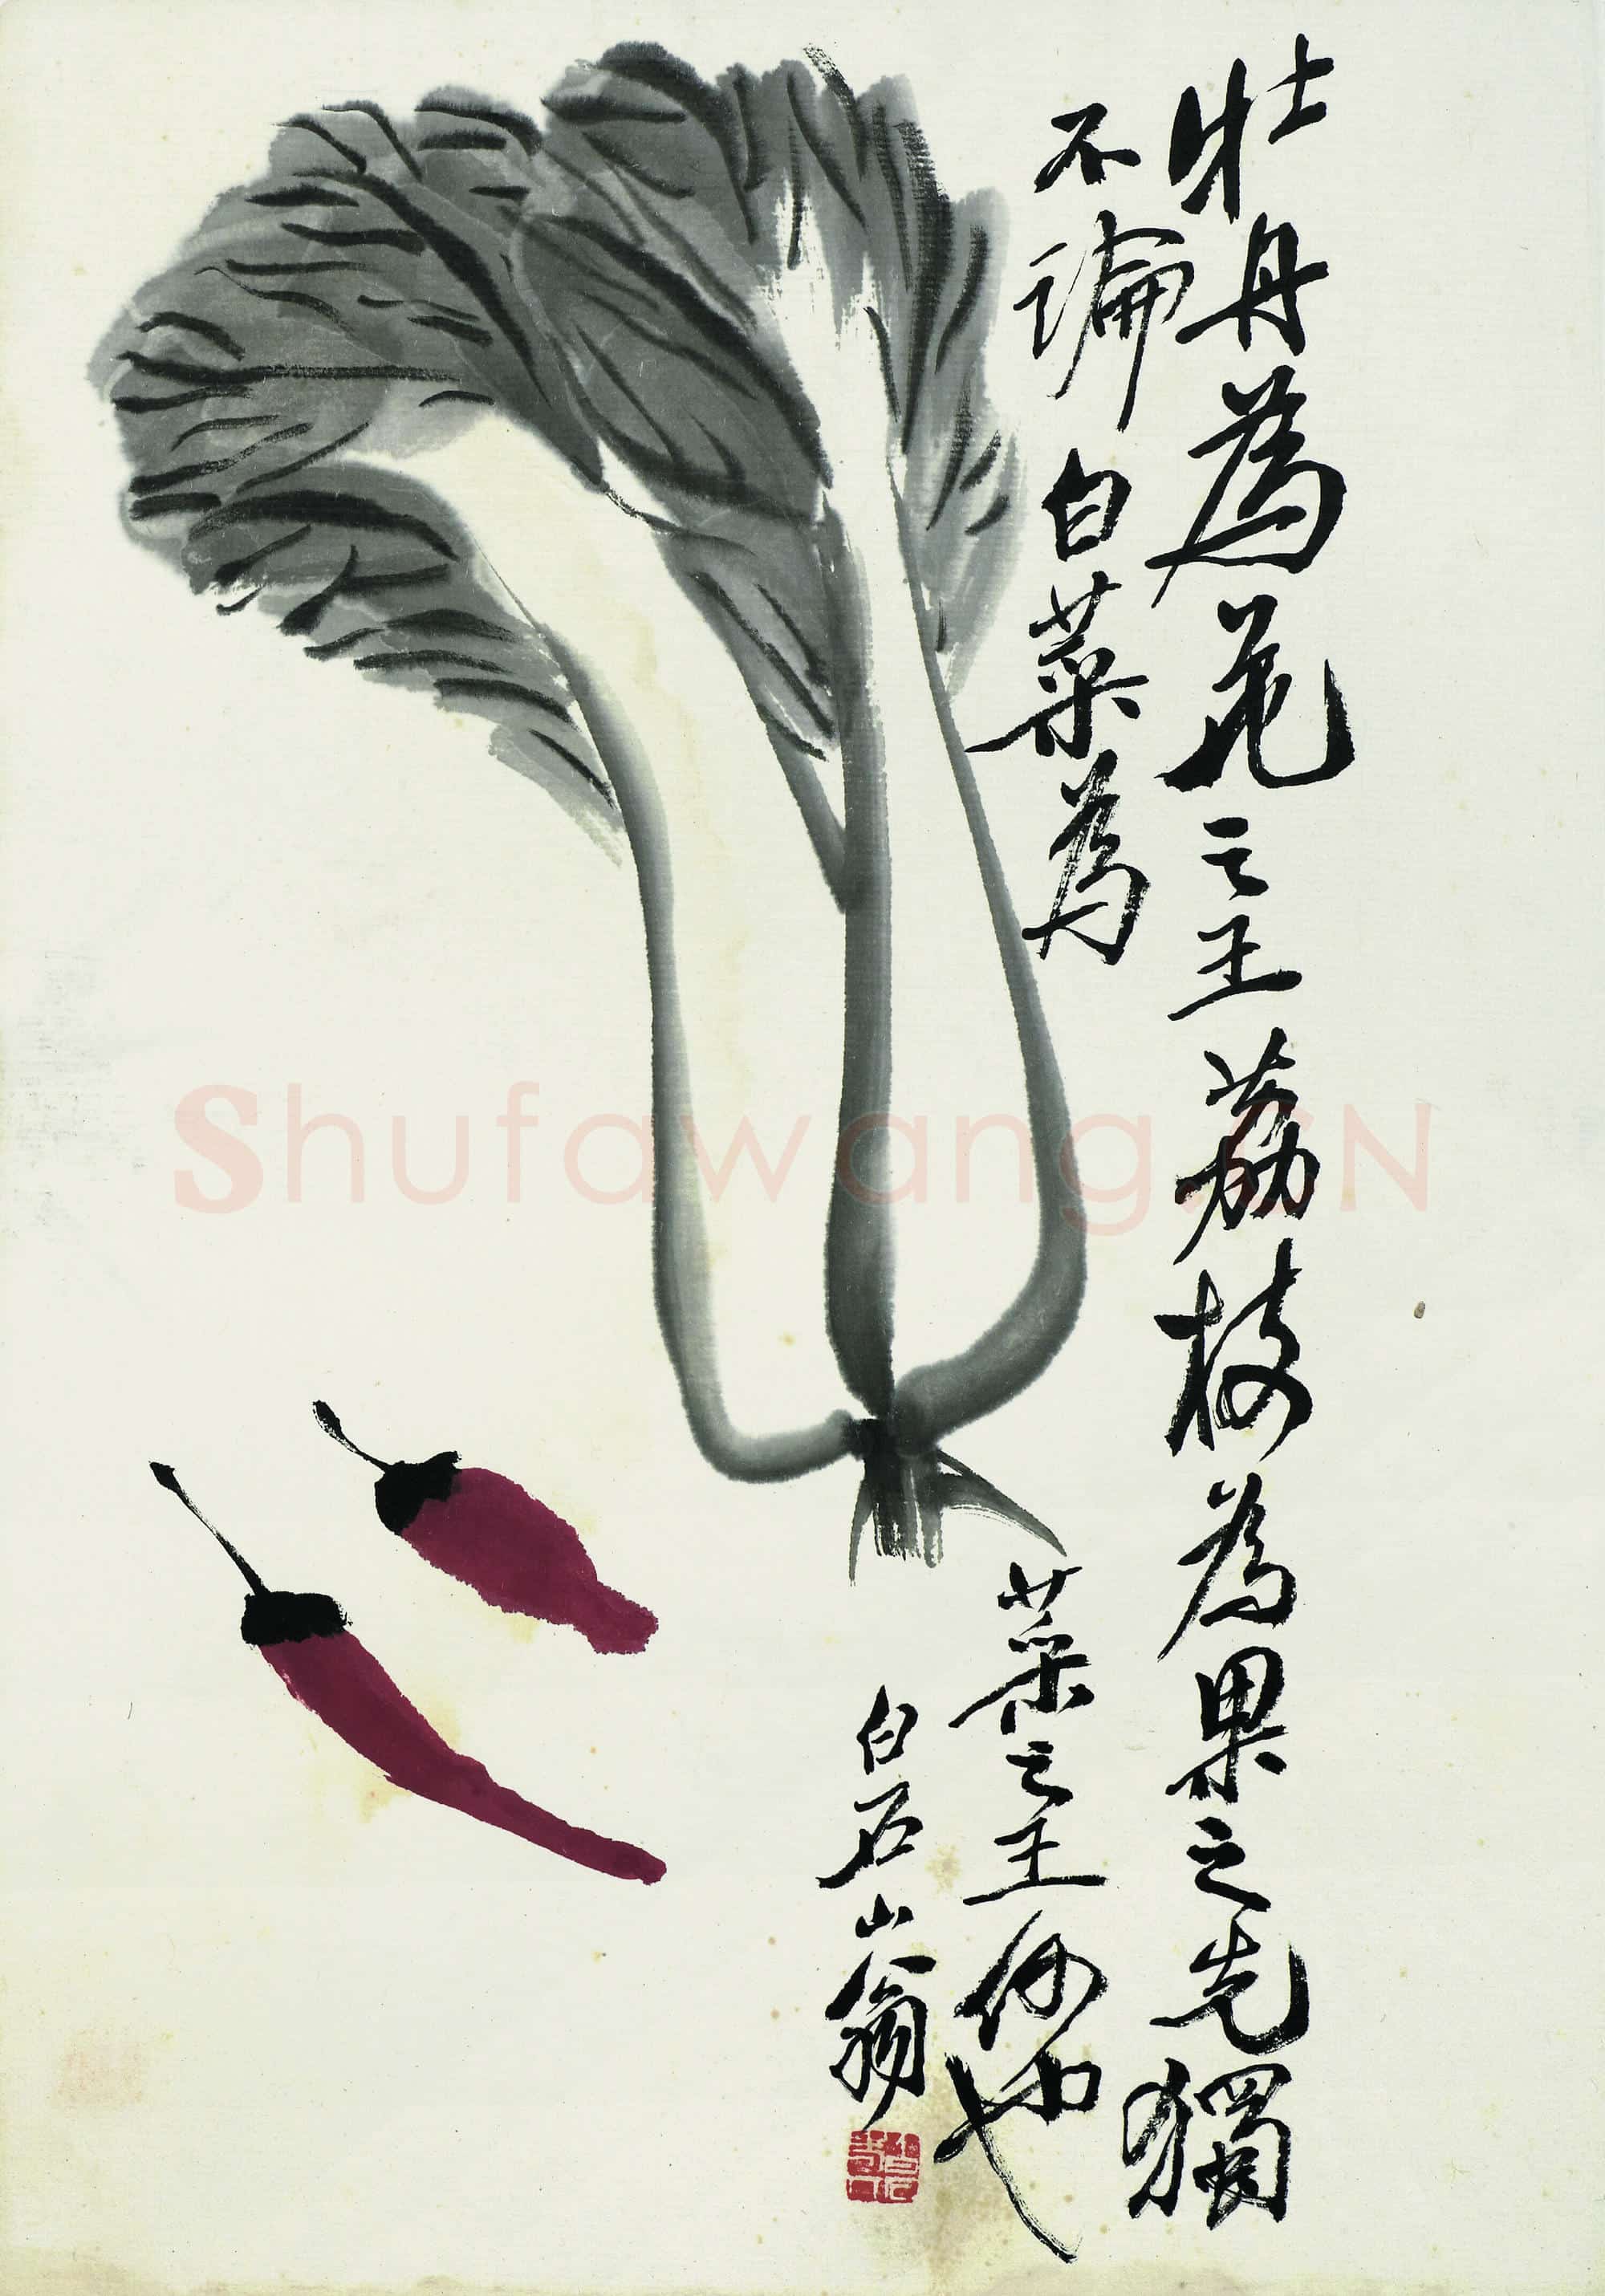 牡丹為花之王荔枝為果之先獨
不論白菜為
菜之王何也
白石山翁
Shufawang.CN